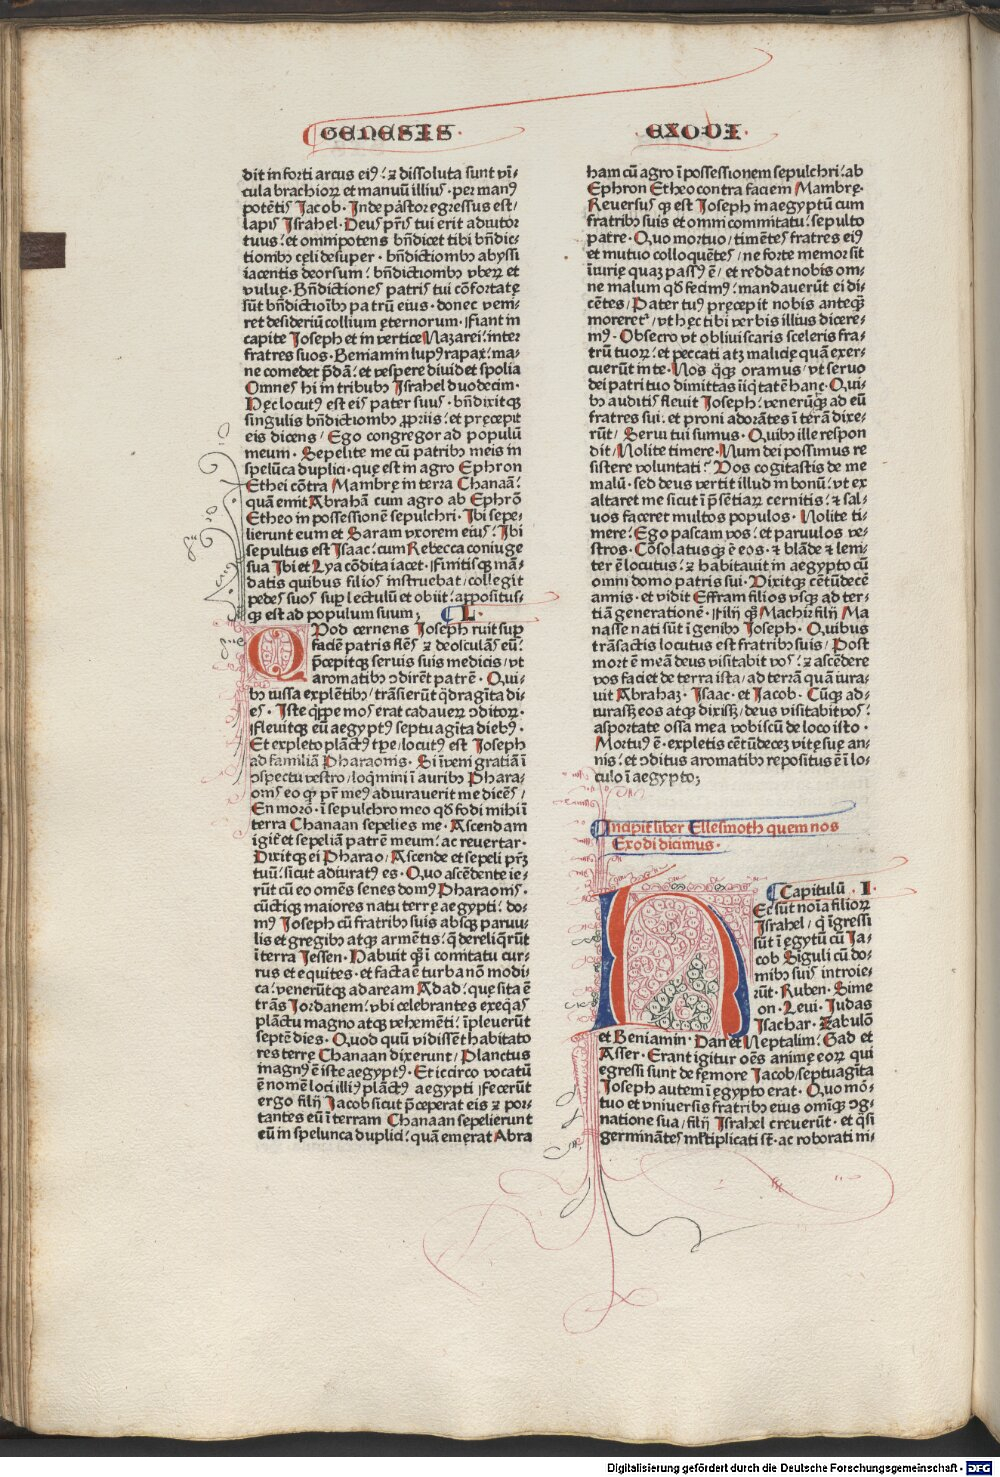 GENESIS
EXODI
dit in forti arcus eiꝰ ꝛ dissoluta sunt vī-
cula brachioꝝ et manuū illius · per manꝰ
potētis Jacob · Inde pastor egressus est/
lapis Israhel · Deus pr̄is tui erit adiutor
tuus · et omnipotens bñdicet tibi bñdic-
tionibꝫ cęli desuper · bñdictionibꝫ abyssi
iacentis deorsum · bñdictionibꝫ vbeꝝ et
vuluę · Bñdictiones patris tui cōfortatę
sūt bñdictiōibꝫ patrū eius · donec veni-
ret desideriū collium ęternorum · Fiant in
capite Joseph et in vertice Nazarei · inter
fratres suos · Beniamin lupꝰ rapax · ma-
ne comedet p̄dā · et vespere diuidet spolia
Omnes hi in tribubꝫ Israhel duodecim ·
Hęc locutꝰ est eis pater suus · bñdixitqꝫ
singulis bñdictionibꝫ ꝓpriis · et pręcepit
eis dicens / Ego congregor ad populū
meum · Sepelite me cū patribꝫ meis in
spelūca duplici · quę est in agro Ephron
Ethei cōtra Mambrę in terra Chanaā ·
quā emit Abrahā cum agro ab Ephrō
Etheo in possessionē sepulchri · Ibi sepe-
lierunt eum et Saram vxorem eius · Ibi
sepultus est Isaac · cum Rebecca coniuge
sua Ibi et Lya cōdita iacet · Finitisqꝫ mā-
datis quibus filios instruebat / collegit
pedes suos sup̱ lectulū et obiit · appositus-
qꝫ est ad populum suum; L ·
QVod cernens Joseph ruit sup̱
faciē patris flēs ꝛ deosculās eū ·
p̄cepitqꝫ seruis suis medicis / vt
aromatibꝫ ↄdirēt patrē · Qui-
bꝫ iussa explētibꝫ / trāsierūt q̄dragīta di-
es · Iste qͥppe mos erat cadaueꝝ ↄditoꝝ ·
Fleuitqꝫ eū aegyptꝰ septuagīta diebꝰ ·
Et expleto plāctꝰ tp̄e / locutꝰ est Joseph
ad familiā Pharaonis · Si īueni gratiā ī
ↄspectu vestro / loqͥmini ī auribꝫ Phara-
onis eo qꝫ pr̄ meꝰ adiurauerit me dicēs /
En morior · ī sepulchro meo qd̄ fodi mihi ī
terra Chanaan sepelies me · Ascendam
igit̄ et sepeliā patrē meum · ac reuertar ·
Dixitqꝫ ei Pharao / Ascende et sepeli pr̄ꝫ
tuū · sicut adiuratꝰ es · Quo ascēdente ie-
rūt cū eo omēs senes domꝰ Pharaonis ·
cūctiqꝫ maiores natu terrę aegypti · do-
mꝰ Joseph cū fratribꝫ suis absqꝫ paruu-
lis et gregibꝫ atqꝫ armētis · q̄ dereliq̄rūt
ī terra Jessen · Habuit qꝫ ī comitatu cur-
rus et equites · et facta ē turba nō modi
ca · veneruntqꝫ ad aream Adad · que sita ē
trās Jordanem · vbi celebrantes exeq̄as
plāctu magno atqꝫ vehemēti · īpleuerūt
septē dies · Quod quū vidissēt habitato
res terrę Chanaan dixerunt / Planctus
magnꝰ ē iste aegyptꝰ · Et iccirco vocatū
ē nomē loci illiꝰ plāctꝰ aegypti Fecerūt
ergo filij Jacob sicut p̄ceperat eis ꝛ por-
tantes eū ī terram Chanaan sepelierunt
eū in spelunca duplici · quā emęrat Abra
ham cū agro ī possessionem sepulchri · ab
Ephron Etheo contra faciem Mambrę ·
Reuersusqꝫ est Joseph in aegyptū cum
fratribꝫ suis et omni commitatu · sepulto
patre · Quo mortuo / timētes fratres eiꝰ
et mutuo colloquētes / ne forte memor sit
īiurię quaꝫ passꝰ ē / et reddat nobis om-
ne malum qd̄ fecimꝰ · mandauerūt ei di-
cētes / Pater tuꝰ pręcepit nobis anteqꝫ
moreret̄ / vt hęc tibi verbis illius dicere-
mꝰ · Obsecro vt obliuiscaris sceleris fra-
trū tuoꝝ · et peccati atqꝫ malicię quā exer-
cuerūt in te · Nos qͦqꝫ oramus / vt seruo
dei patri tuo dimittas iiqͥtatē hanc · Qui-
bꝫ auditis fleuit Joseph · venerūtqꝫ ad eū
fratres sui · et proni adorātes ī terā dixe-
rūt / Serui tui sumus · Quibꝫ ille respon
dit / Nolite timere · Num dei possimus re
sistere voluntati · Vos cogitastis de me
malū · sed deus vertit illud in bonū · vt ex
altaret me sicut ī p̄sētiaꝝ cernitis · ꝛ sal-
uos faceret multos populos · Nolite ti-
mere · Ego pascam vos · et paruulos ve-
stros · Cōsolatusqꝫ ē eos · ꝛ blāde ꝛ leni-
ter ē locutus · ꝛ habitauit in aegypto cū
omni domo patris sui · Vixitqꝫ cētūdecē
annis · et vidit Effram filios vsqꝫ ad ter-
tiā generationē · Filij qͦqꝫ Machir filij Ma
nasse nati sūt ī genibꝫ Joseph · Quibus
trāsactis locutus est fratribꝫ suis / Post
mortē meā deus visitabit vos · ꝛ ascēdere
vos faciet de terra ista / ad terrā quā iura-
uit Abrahaꝫ · Isaac · et Jacob · Cūqꝫ ad-
iurassꝫ eos atqꝫ dixissꝫ / deus visitabit vos ·
asportate ossa mea vobiscū de loco isto ·
Mortuꝰ ē · expletis cētūdeceꝫ vitę suę an-
nis · et ↄditus aromatibꝫ repositus ē ī lo-
culo ī aegypto;
Incipit liber Ellesmoth quem nos
Exodi dicimus ·
Capitulū · I ·
HEc sūt noīa filioꝝ
Israhel / q̄ īgressi
sūt ī egytū cū Ja-
cob Siguli cū do-
mibꝫ suis introie-
rūt · Ruben · Sime
on · Leui · Judas
Isachar · Zabulō
et Beniamin · Dan et Neptalim · Gad et
Asser · Erant igitur oēs animę eoꝝ qui
egressi sunt de fęmore Jacob / septuagīta
Joseph autem ī egypto erat · Quo mō-
tuo et vniuersis fratribꝫ eius omīqꝫ ↄg-
natione sua / filij Israhel creuerūt · et qͣsi
germinātes ml̄tiplicati st̄ · ac roborati ni-
Digitalisierung gefördert durch die Deutsche Forschungsgemeinschaft - DFG